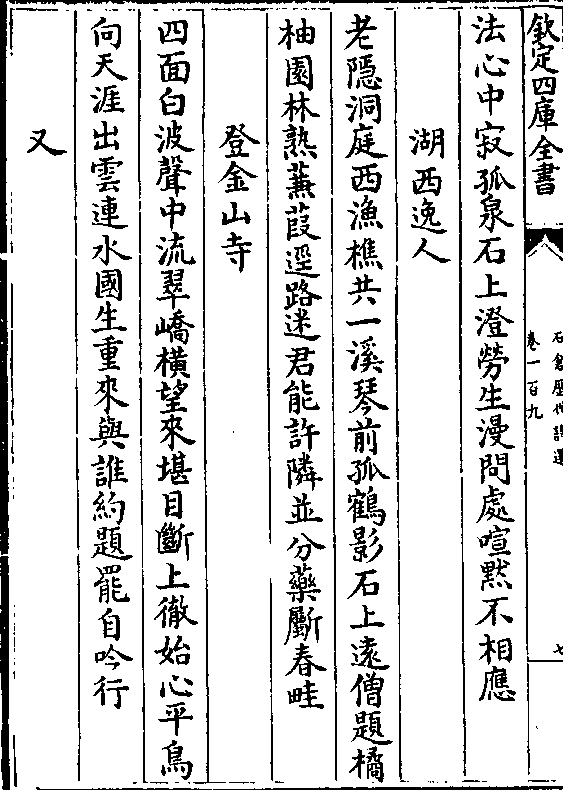 欽定四庫全書
石倉歷代詩選
卷一百九
七
法心中寂孤泉石上澄勞生漫問處喧黙不相應
湖西逸人
老隱洞庭西漁樵共一溪琴前孤鶴影石上遠僧題橘
柚園林熟蒹葭逕路迷君能許隣並分藥斸春畦
登金山寺
四面白波聲中流翠嶠橫望來堪目斷上徹始心平鳥
向天涯出雲連水國生重來與誰約題罷自吟行
又